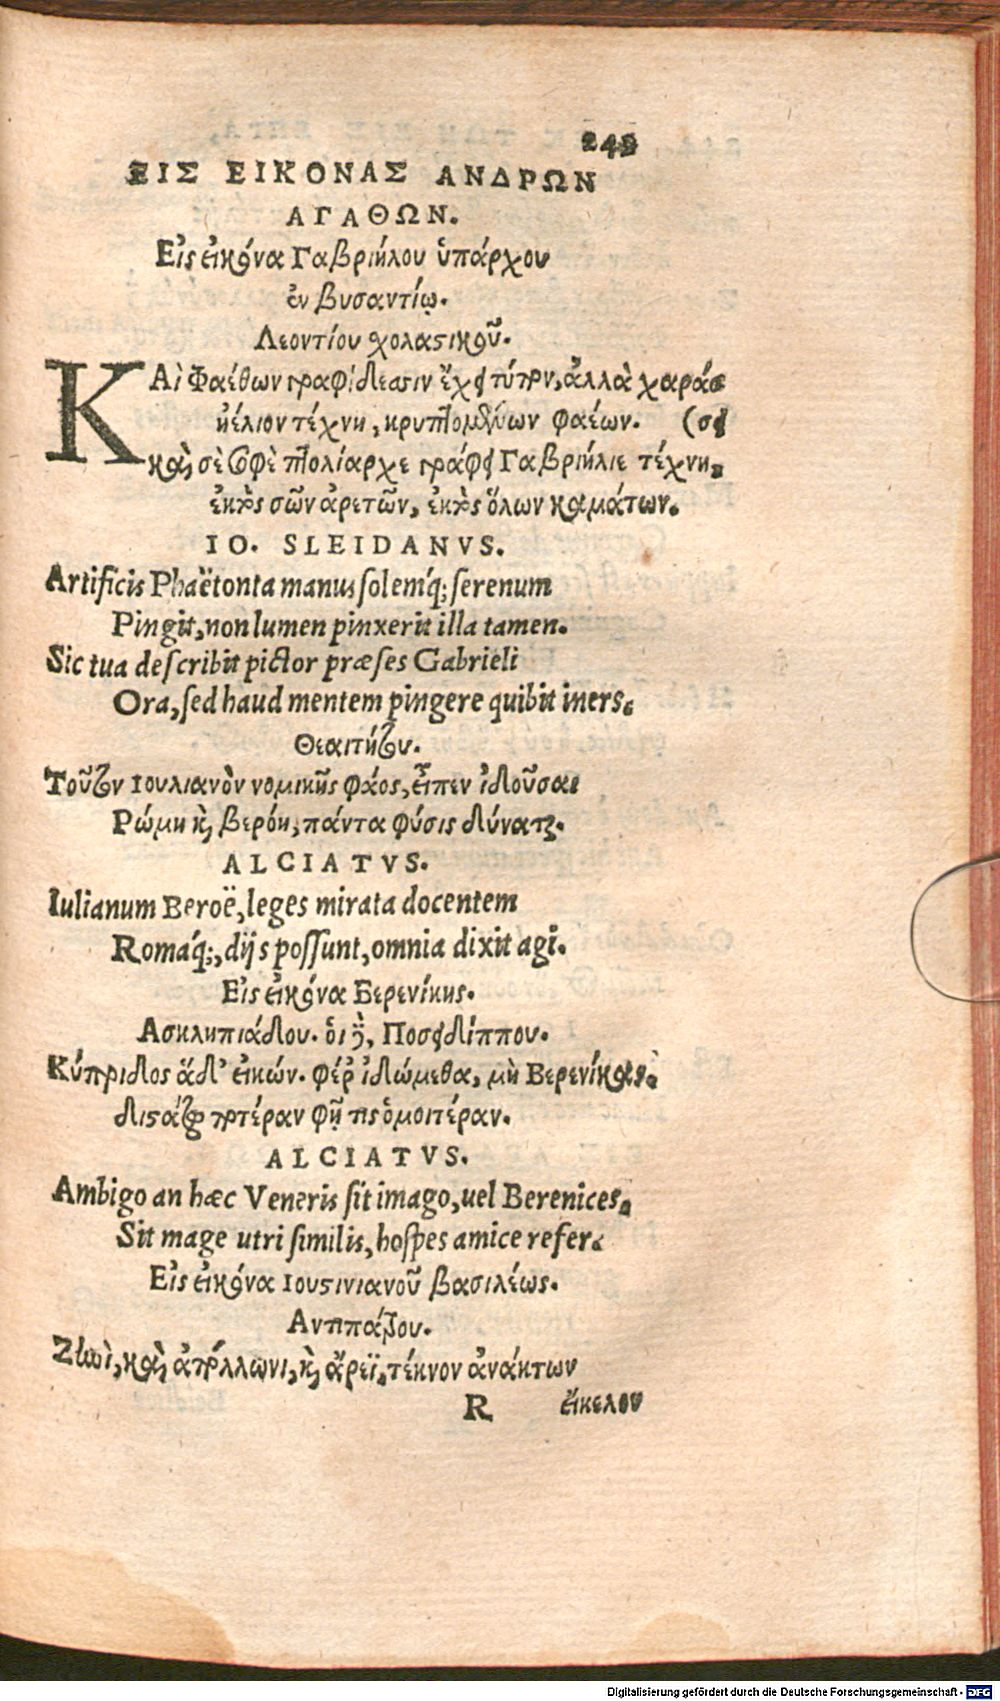 249
ΕΙΣ ΕΙΚΟΝΑΣ ΑΝΔΡΩΝ
ΑΓΑΘΩΝ.
Εἰς εἰκόνα Γαβριήλου ὑπάρχου
ἐν βυσαντίῳ.
Λεοντίου χολαστικοῦ.
ΚΑὶ Φαέθων γραφίδεσσιν ἔχει τύπον, ἀλλὰ χαράσ
ἠέλιον τέχνη, κρυπτομένων φαέων. (σει
καὶ σὲ σοφὲ πτολίαρχε γράφει Γαβριήλιε τέχνη,
ἐκτὸς σῶν ἀρετῶν, ἐκτὸς ὅλων καμάτων.
IO. SLEIDANVS.
Artificis Phaëtonta manus solemq́; serenum
Pingit, non lumen pinxerit illa tamen.
Sic tua describit pictor præses Gabrieli
Ora, sed haud mentem pingere quibit iners.
Θεαιτήτου.
Τοῦτον Ιουλιανὸν νομικῆς φάος, εἶπεν ἰδοῦσαι
Ρώμη κὶ βερόη, πάντα φύσις δύναται.
ALCIATVS.
Iulianum Beroë, leges mirata docentem
Romaq́;, dijs possunt, omnia dixit agi.
Εἰς εἰκόνα Βερενίκης.
Ασκληπιάδου. οἱ δὲ, Ποσειδίππου.
Κύπριδος ἅδ' εἰκών. φέρ ἰδώμεθα, μὴ Βερενίκας.
διστάζω ποτέραν φῇ τις ὁμοιτέραν.
ALCIATVS.
Ambigo an hæc Veneris sit imago, uel Berenices.
Sit mage utri similis, hospes amice refer.
Εἰς εἰκόνα Ιουστινιανοῦ βασιλέως.
Αντιπάτρου.
Ζωὶ, καὶ ἀπόλλωνι, κὶ ἄρεϊ, τέκνον ἀνάκτων
R εἴκελον
Digitalisierung gefördert durch die Deutsche Forschungsgemeinschaft - DFG